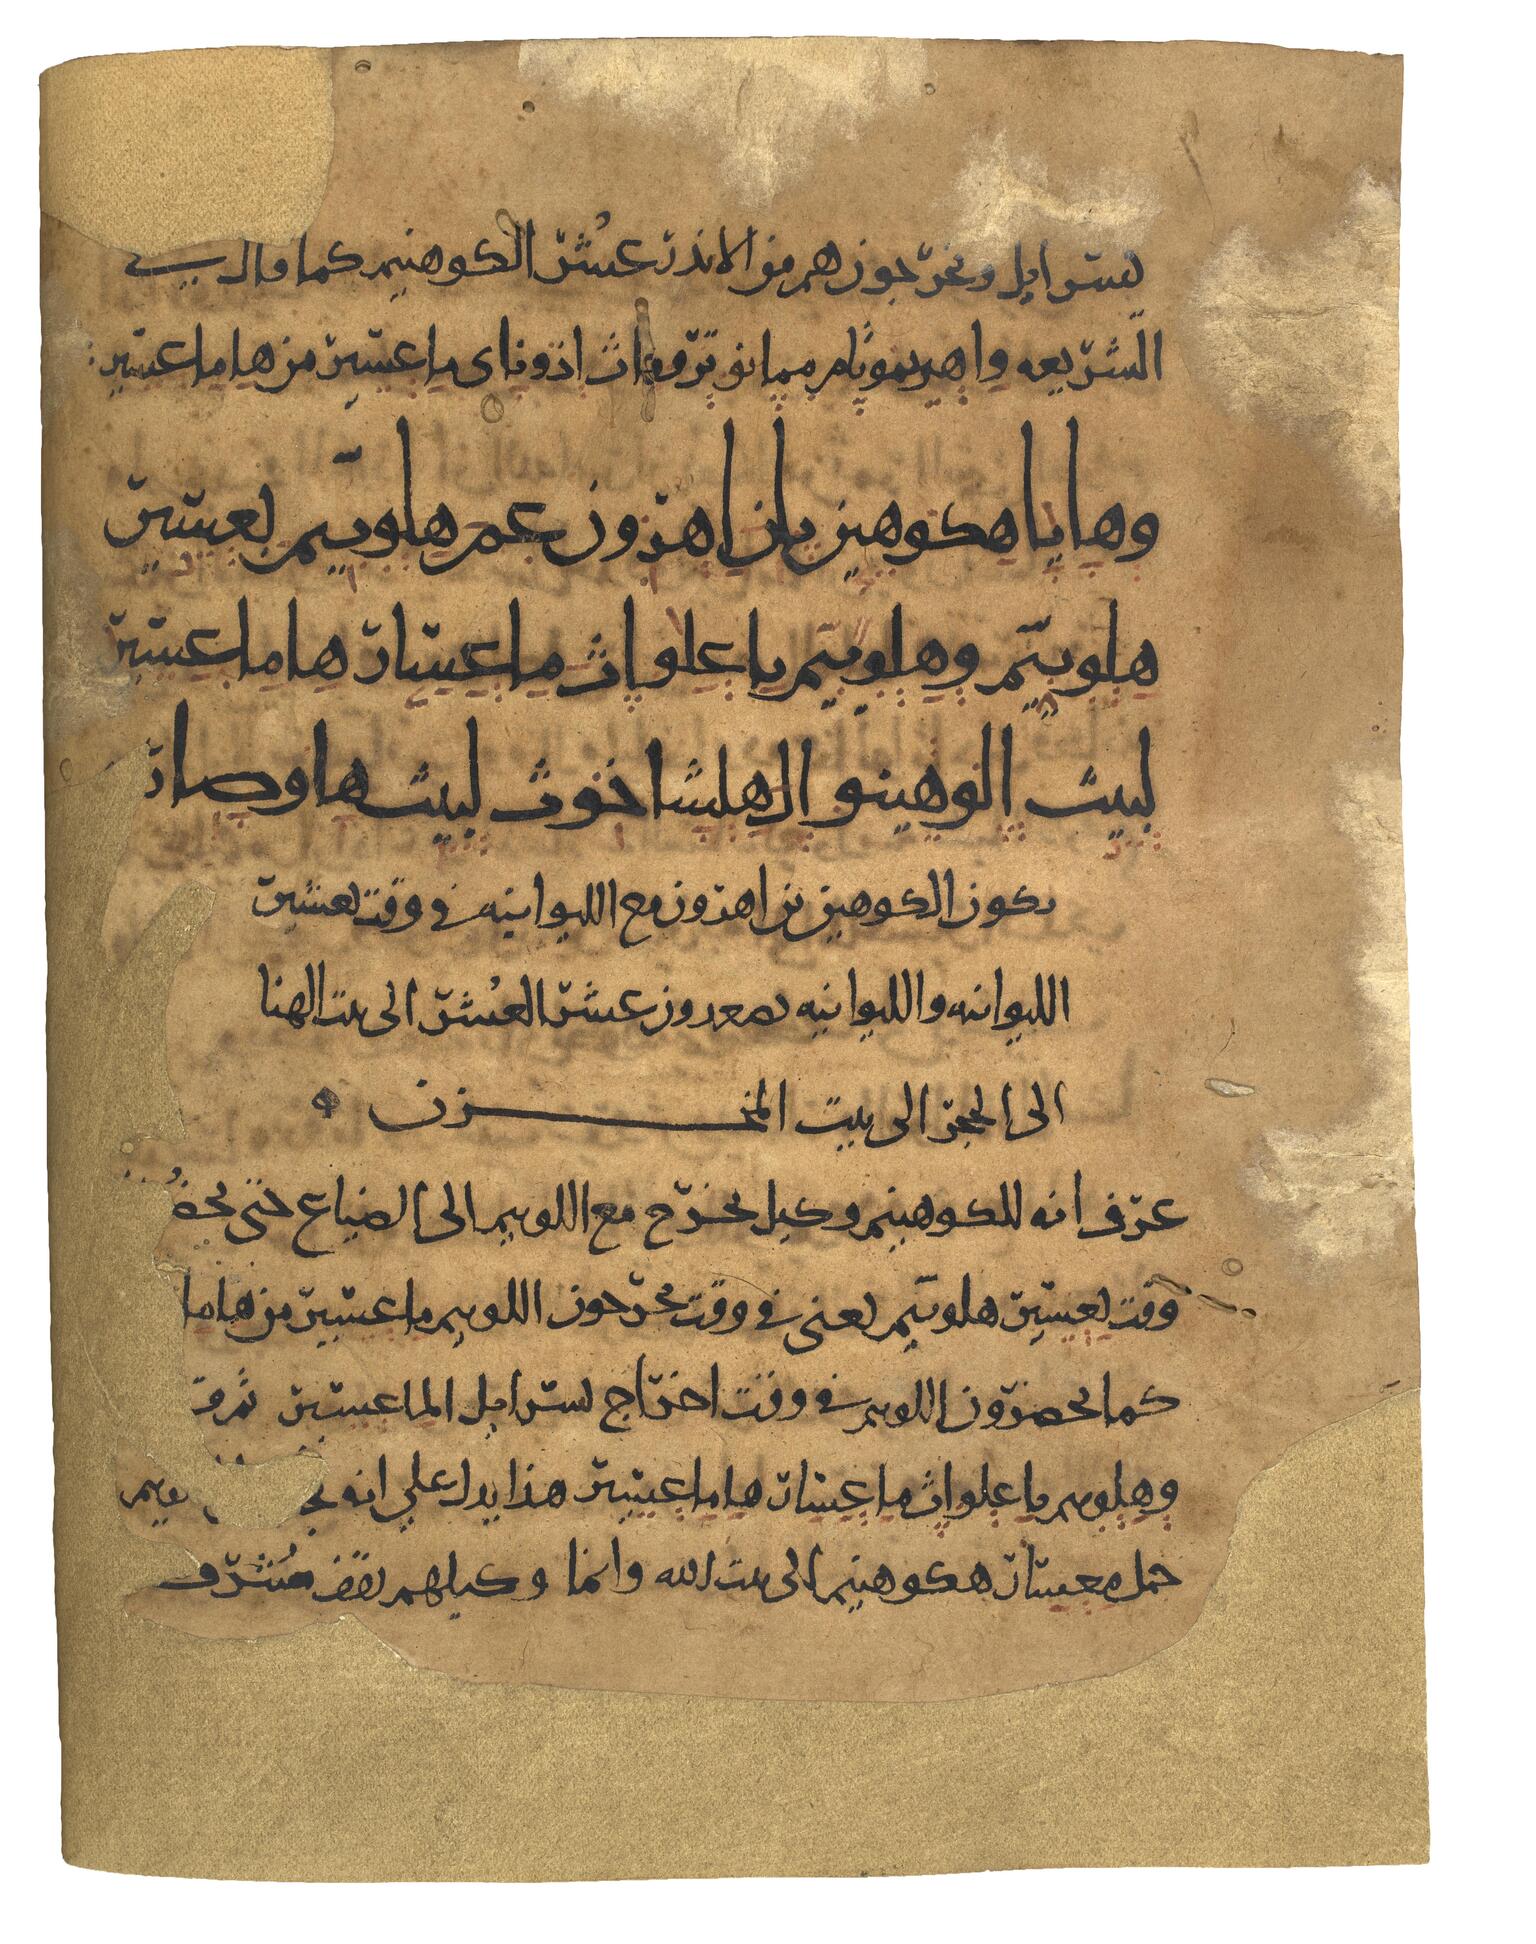 يسرايل ويخرجون هم من الاندر عُشر الكوهنيم كما قال في
الشريعه واهريموثام ميمانو تروماث اذوناى ماعسير من هاماعسير
وهايا هكوهين بان اهرون عم هالويّم لعسير
هلويّم وهلويّم ياعلو اث ماعسار هاماعسير
لبيث الوهينو ال هلشاخوث لبيث هاوصار
يكون الكوهين بن اهرون مع الليوانيه في وقت تعشير
الليوانيه والليوانيه يصعدون عشر العُشر الى بيت الهنا
الى الحجر الى بيت المخزن
عرّف انه للكوهنيم وكيل يخرج مع اللويم الى الضياع حتى يحضُ
وقت لعسير هلويّم يعنى في وقت يخرجون اللويم ماعسير من هاما
كما يحضرون اللويم في وقت اخراج يسرايل الماعسير ثم ق
وهلويم ياعلو اث ماعسار هاماعسير هذا يدل على انه ويم
حمل معسار هكوهنيم الى بيت الله وانما وكيلهم يقف مُشرف